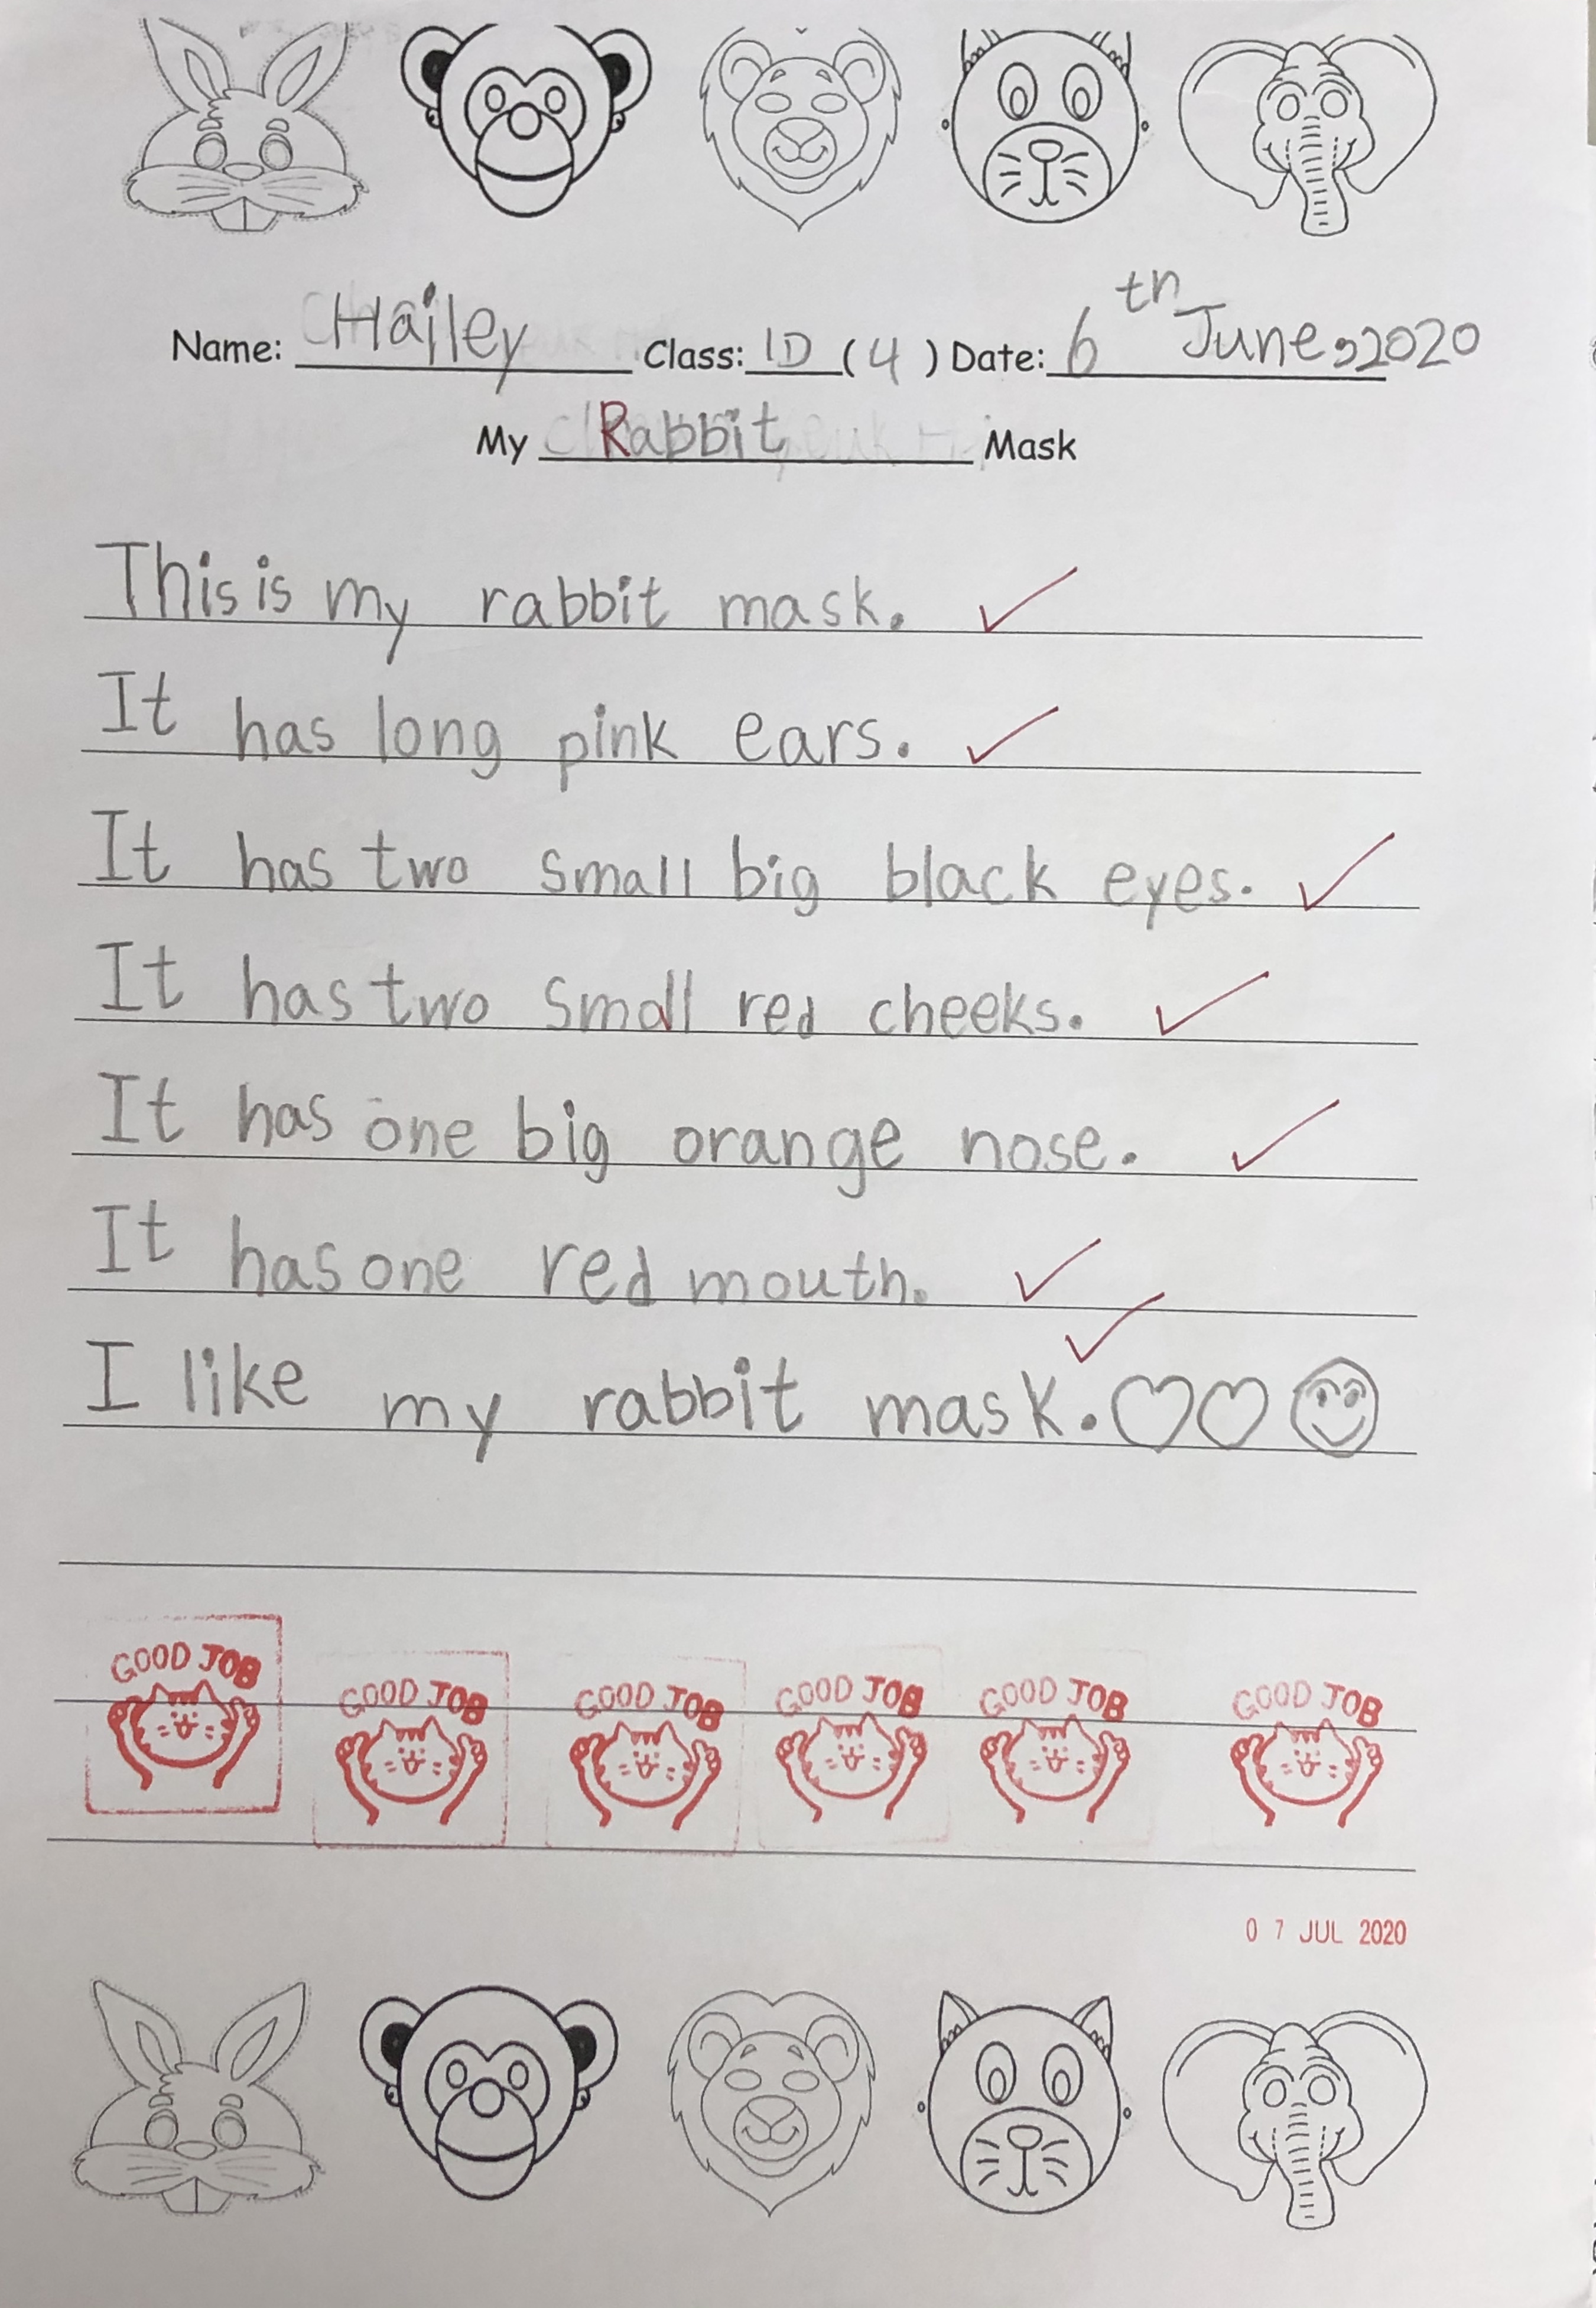 Name: Hailey Class: 1D (4) Date: 6th June, 2020
My Rabbit Mask
This is my rabbit mask.
It has long pink ears.
It has two small big black eyes.
It has two small red cheeks.
It has one big orange nose.
It has one red mouth.
I like my rabbit mask.
GOOD JOB GOOD JOB GOOD JOB GOOD JOB GOOD JOB GOOD JOB
07 JUL 2020